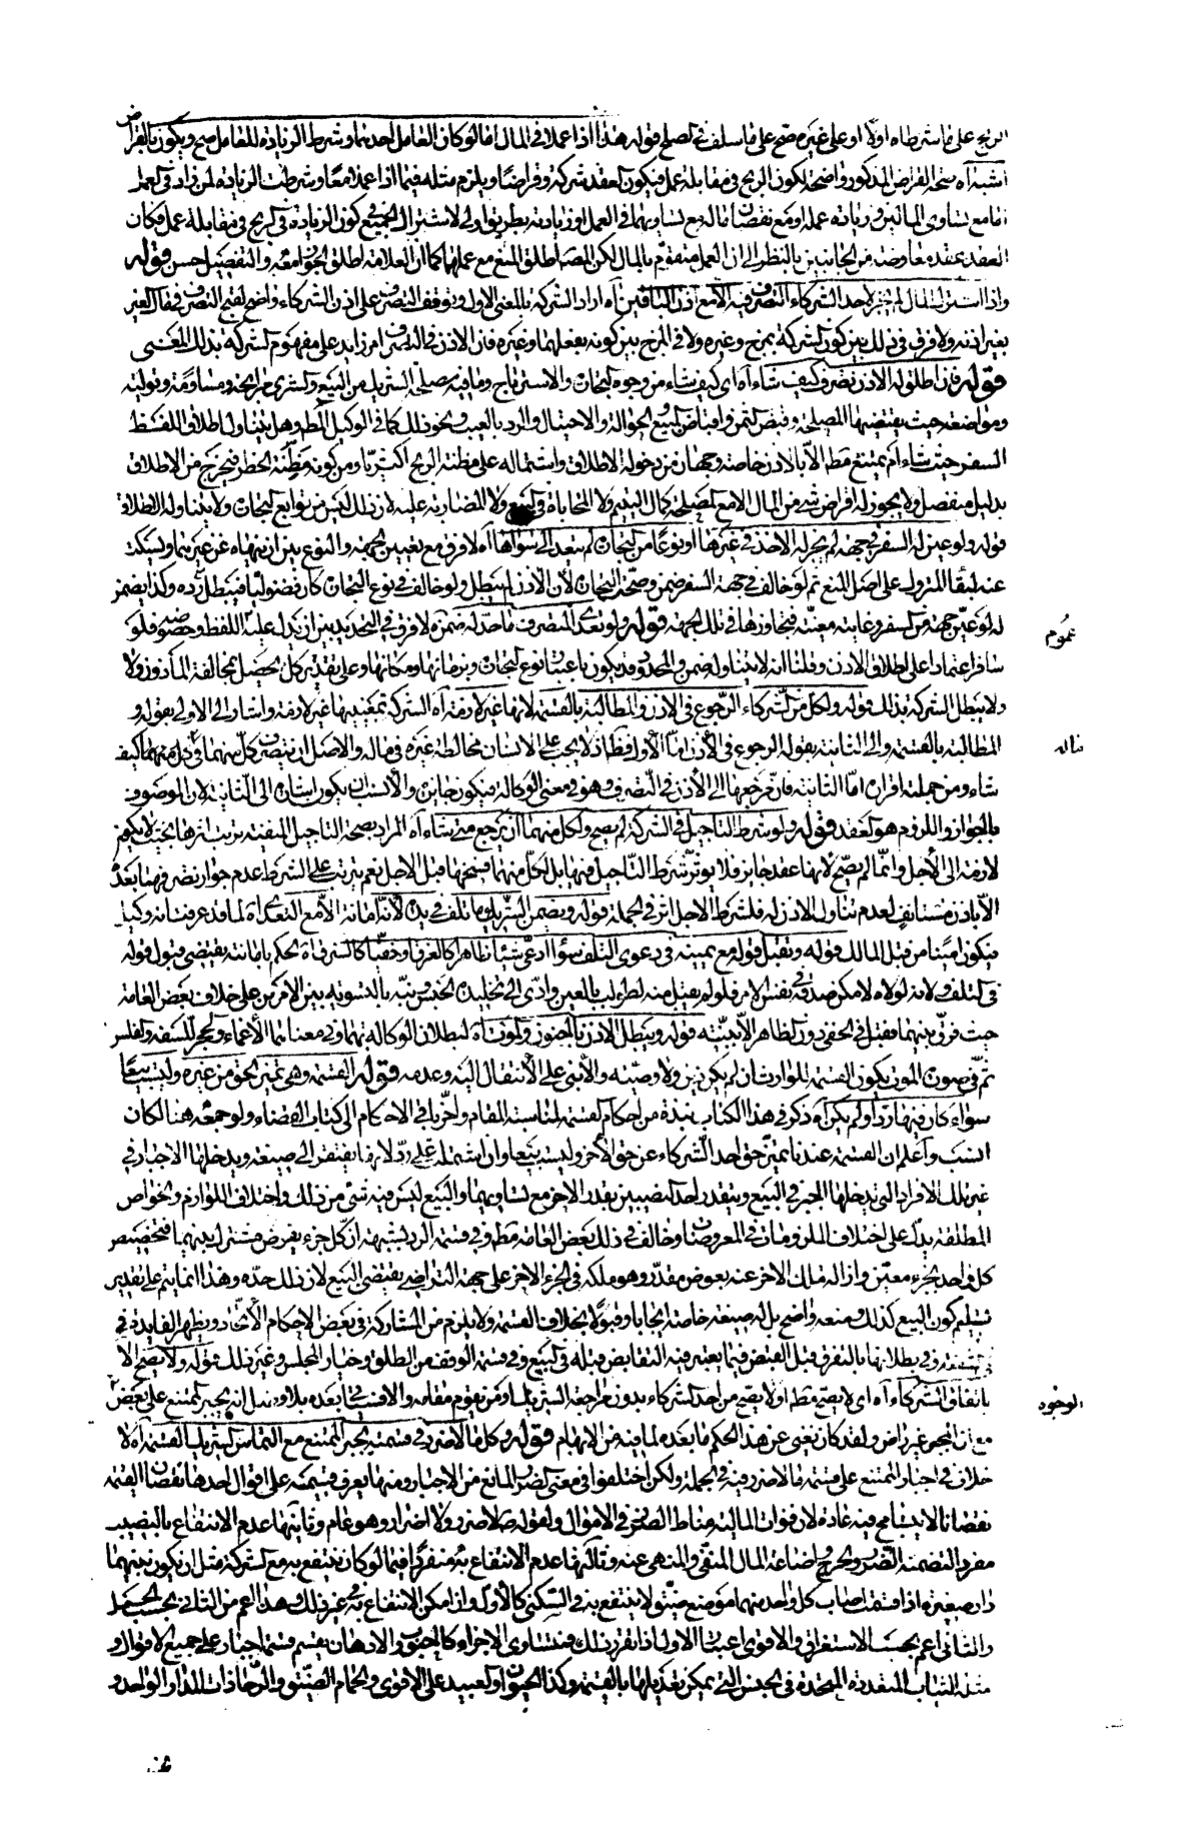 الربح على ما شرطاه اولا او على غيره صح على ما سلف في الصلح قوله هذا اذا عملا في المال اما لو كان العامل احدهما وشرط الزيادة للعامل صح ويكون بالقراض
اشبه آه صحة القراض المذكور واضحة لكون الربح في مقابلة عمل فيكون العقد شركة وقراضا ويلزم مثله فيما اذا عملا معا وشرطت الزيادة لمن زاد في العمل
اما مع تساوي المالين وزيادة عمله او مع نقصان ماله مع تساويهما في العمل او زيادته بطريق اولى لاشتراك الجميع في كون الزيادة في الربح في مقابلة عمل فكان
العقد بمقدمه معاوضة من الجانبين بالنظر الى ان العمل متقوم بالمال لكن المصنف اطلق المنع مع عملهما كما ان العلامة اطلق الجواز معه والتفصيل حسن قوله
واذا اشترك المال لم يجز لاحد الشركاء التصرف فيه الا مع اذن الباقين آه اراد الشركة بالمعنى الاول وتوقف التصرف على اذن الشركاء واضح لقبح التصرف في مال الغير
بغير اذنه ولا فرق في ذلك بين كون الشركة بمزج وغيره ولا في المزج بين كونه بفعلهما وغيره فان الاذن في التصرف امر زايد على مفهوم الشركة بذلك المعنى
قوله فان اطلق له الاذن تصرف كيف شاء آه اي كيف شاء من وجوه التجارة والاسترباح وما فيه مصلحة الشريك من البيع والشرى مرابحة ومساومة وتولية
ومواضعة حيث يقتضيها المصلحة وقبض الثمن واقباض المبيع والحوالة والاحتيال والرد بالعيب ونحو ذلك كما في الوكيل المطلق وهل يتناول اطلاق اللفظ
السفر حيث شاء ام يمتنع مطلقا الا بالاذن خاصة وجهان من دخوله الاطلاق واشتماله على مظنة الربح اكثريا ومن كونه مظنة الخطر فيخرج من الاطلاق
بدليل منفصل ولا يجوز له اقراض شيء من المال الا مع المصلحة كمال اليتيم ولا المحاباة في البيع ولا المضاربة عليه لان ذلك ليس من توابع التجارة ولا يتناوله الاطلاق
قوله ولو عين له السفر في جهة لم يجز له الاخذ في غيرها او نوعا من التجارة لم يتعد الى سواها آه لا فرق مع تعيين الجهة والنوع بين ان ينهاه عن غيرهما ويسكت
عنه لبقاء المتروك على اصل المنع ثم لو خالف في جهة السفر ضمن وصحت التجارة لان الاذن لم يبطل ولو خالف في نوع التجارة كان فضوليا فيبطل رده وكذا يضمن
له لو عين جهة من السفر وغاية معينة فتجاوزها في تلك الجهة قوله ولو تعدى المتصرف ما حد له ضمن آه لا فرق في التحديد بين ان يدل عليه اللفظ وخصوصه فلو
عموم
سافر اعتمادا على اطلاق الاذن وقلنا انه لا يتناوله ضمن والحدود قد يكون باعتبار نوع التجارة وزمانها ومكانها وعلى تقدير كل يحصل مخالفة الماذون ولا
ولا يبطل الشركة بذلك قوله ولكل من الشركاء الرجوع في الاذن والمطالبة بالقسمة لانها غير لازمة آه الشركة بمعنييها غير لازمة واشار الى الاولى بقوله و
المطالبة بالقسمة والى الثانية بقوله الرجوع في الاذن اما الاول فظاهر اذ لا يجب على الانسان مخالطة غيره في ماله والاصل ان يتصرف كل منهما في ماله كيف
ماله
شاء ومن جملته افرازه اما الثانية فان مرجعها الى الاذن في التصرف وهو في معنى الوكالة فيكون جائزا والانسب ان يكون اشارة الى الثانية لان الموصوف
بالجواز واللزوم هو العقد قوله ولو شرط التاجيل في الشركة لم يصح ولكل منهما ان يرجع متى شاء آه المراد بصحة التاجيل المنفية ترتب اثرها بحيث يكون
لازمة الى الاجل وانما لم يصح لانها عقد جائز فلا يؤثر شرط التاجيل فيها بل لكل منهما فسخها قبل الاجل نعم يترتب على الشرط عدم جواز تصرفهما بعده
الا باذن مستانف لعدم تناول الاذن له فلشرط الاجل اثر في الجملة قوله ولا يضمن الشريك ما تلف في يده لانه امانة الا مع التعدي آه لما قد عرفت انه وكيل
فيكون امينا من قبل المالك قوله ويقبل قوله مع يمينه في دعوى التلف سواء ادعى سببا ظاهرا كالغرق او خفيا كالسرقة آه الحكم بامانته يقتضي قبول قوله
في التلف ولانه لولاه لامكن صدقه في نفس الامر فلو لم يقبل منه لطولب بالعين وادى الى تخليده الحبس ونبه بالتسوية بين الامرين على خلاف بعض العامة
حيث فرق بينهما فقبل في الخفي دون الظاهر الا ببينة قوله ويبطل الاذن بالجنون والموت آه لبطلان الوكالة بهما وفي معناهما الاغماء والحجر للسفه والفلس
ثم في صورة الموت يكون القسمة للوارث ان لم يكن دين ولا وصية والا بنى على الانتقال اليه وعدمه قوله القسمة وهي تمييز الحق من غيره وليست بيعا
سواء كان فيها رد او لم يكن آه ذكر في هذا الكتاب نبذة من احكام القسمة لمناسبة المقام واخر باقي الاحكام الى كتاب القضاء ولو جمعه هنا لكان
انسب واعلم ان القسمة عندنا تمييز حق احد الشركاء عن حق الاخر وليست بيعا وان اشتملت على رد لانها لا تفتقر الى صيغة ويدخلها الاجبار في
غير تلك الافراد التي يدخلها الجبر في البيع ويتقدر احد النصيبين بقدر الاخر مع تساويهما والبيع ليس فيه شيء من ذلك واختلاف اللوازم والخواص
المطلقة يدل على اختلاف الملزومات والمعروضات وخالف في ذلك بعض العامة مطلقا وفي قسمة الرد لشبهة ان كل جزء يفرض مشترك بينهما فتخصيص
كل واحد بجزء معين وازالة ملك الاخر عنه بعوض مقدر وهو ملكه في الجزء الاخر على جهة التراضي يقتضي البيع لان ذلك حده وهذا انما يتم على تقدير
تسليم كون البيع كذلك ومنعه واضح بل له صيغة خاصة ايجابا وقبولا بخلاف القسمة ولا يلزم من المشاركة في بعض الاحكام الاتحاد ويظهر الفايدة في
الشفعة وفي بطلانها بالتفرق قبل القبض فيما يعتبر فيه التقابض قبله في البيع وفي قسمة الوقف من الطلق وخيار المجلس وغير ذلك قوله ولا يصح الا
باتفاق الشركاء آه اي لا يصح مطلقا او لا يصح من احد الشركاء بدون مراجعة الشريك او من يقوم مقامه والا في ما بعده بلا فصل انه يجبر الممتنع على بعض
الوجوه
مع ان المجبور غير راض ولقد كان يغني عن هذا الحكم ما بعده لما فيه من الابهام قوله وكل ما لا ضرر في قسمته يجبر الممتنع مع التماس الشريك القسمة آه لا
خلاف في اجبار الممتنع على قسمة ما لا ضرر فيه في الجملة ولكن اختلفوا في معنى الضرر المانع من الاجبار ومنها يعرف قسيمه على اقوال احدها نقصان القسمة
نقصانا لا يتسامح فيه عادة لان فوات المالية مناط الضرر في الاموال ولقوله ص لا ضرر ولا اضرار وهو عام وثانيها عدم الانتفاع بالنصيب
مفردا لتضمنه الضرر والحرج واضاعة المال المنفي والمنهي عنه وثالثها عدم الانتفاع به منفردا فيما لو كان ينتفع به مع الشركة مثل ان يكون بينهما
دار صغيرة اذا قسمت اصاب كل واحد منهما موضع ضيق لا ينتفع به في السكنى كالاول وان امكن الانتفاع به في غير ذلك وهذا اعم من الثاني بحسب الحمل
والثاني اعم بحسب الاستغراق والاقوى اعتبار الاول اذا تقرر ذلك فمتساوي الاجزاء كالحبوب والادهان يقسم قسمة اجبار على جميع الاقوال و
مثله الثياب المتعددة المتحدة في الجنس التي يمكن تعديلها بالقيمة وكذا الحيوان والعبيد على الاقوى والحمام الضيق والرحا ذات المدار الواحد و